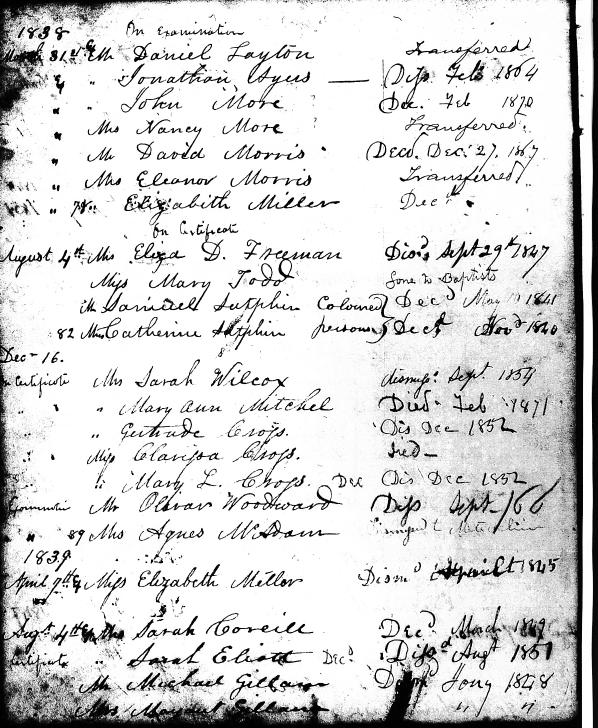 1838 On Examination
March 31st Mr Daniel Layton Transferred
" " Jonathan Ayers — Diss Feb 1864
" " John More Dec. Feb 1870
" Mrs Nancy More Transferred.
" Mr David Morris Decd. Dec. 27. 1867
" Mrs Eleanor Morris Transferred
" 78 " Elizabeth Miller Decd
On Certificate
August 4th Mrs Eliza D. Freeman Dism Sept 29th 1847
Miss Mary Todd gone to Baptists
Mr Samuel Sutphin Colored Decd May 1841
82 Mrs Catherine Sutphin persons Decd Novr 1840
Dec 16.
on Certificate Mrs Sarah Wilcox dismiss. Sept. 1854
" " Mary Ann Mitchel Died Feb 1871
" Gertrude Cross. Dis Dec 1852
Miss Clarissa Cross. Died
" Mary L. Cross. Dec Dis Dec 1852
Examination Mr Oliver Woodward Diss Sept. /66
" 89 Mrs Agnes McAdam
1839
April 9th Miss Elizabeth Miller Dismd April 1845
Augt 4th Mrs Sarah Coreill Decd March 1849
Certificate " Sarah Eliott Decd Dissd Augt 1851
Mr Michael Gillam Jany 1848
Mrs Margaret Gillam " "